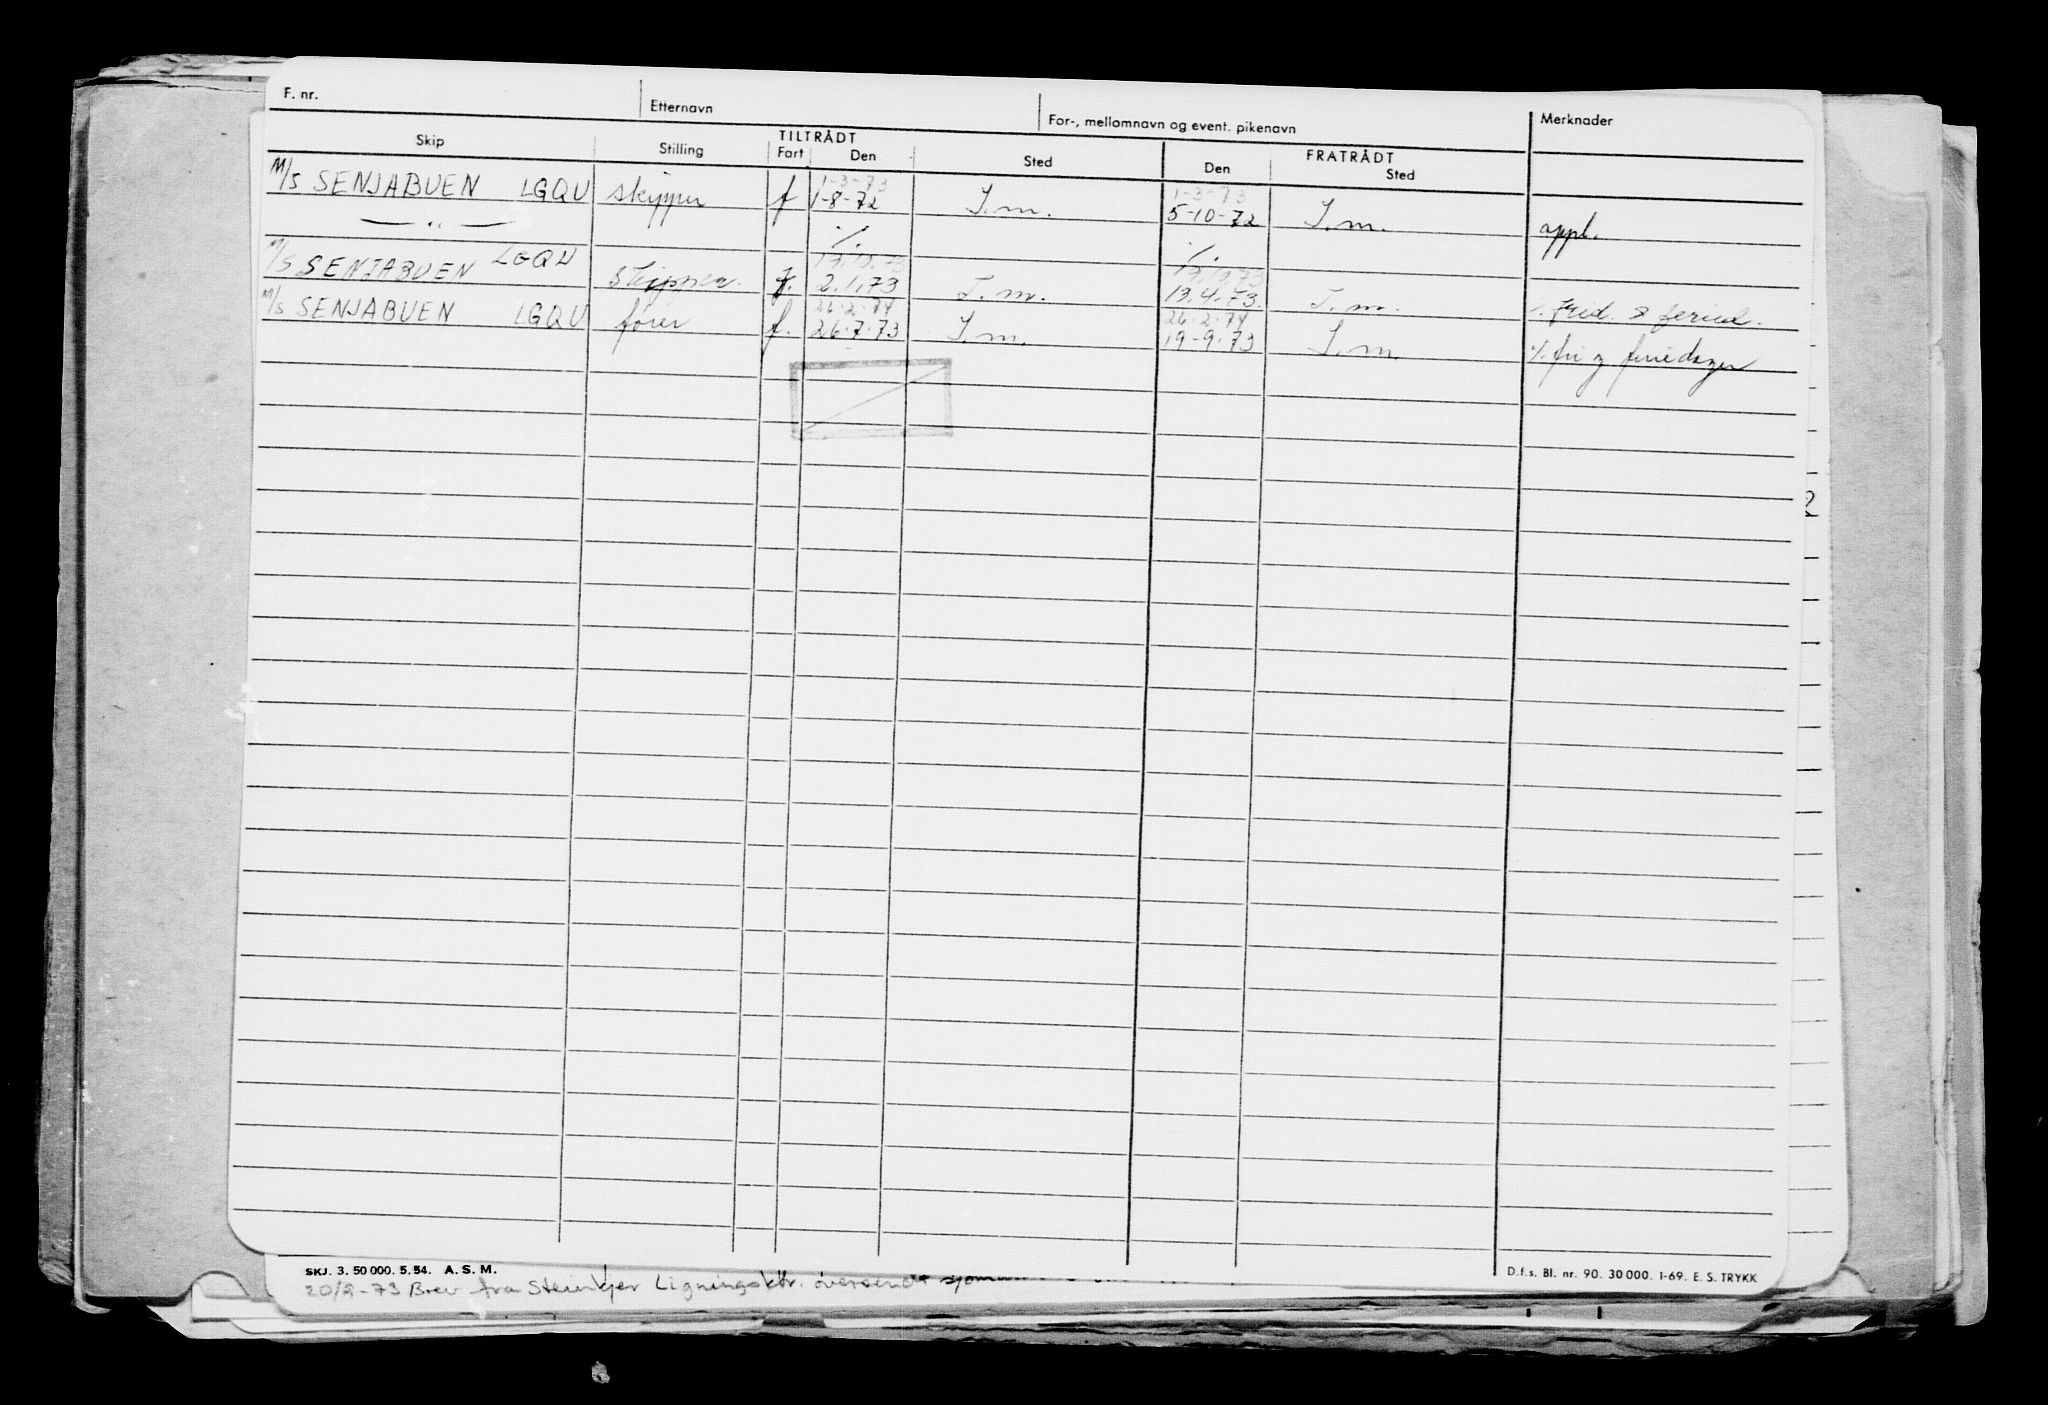 F. nr. Etternavn For-, mellomnavn og event. pikenavn Merknader
TILTRÅDT FRATRÅDT
Skip Stilling Fart Den Sted Den Sted
1-3-73 1-3-73
M/S SENJABUEN LGQU skipper f 1-8-72 I.m. 5-10-72 I.m. appl.
— „ — ./. ./.
19.10.73 19.10.73
M/S SENJABUEN LGQU Skipper f. 2.1.73 I.m. 13.4.73. I.m. ./. frid. & feried.
26.2.74 26.2.74
M/S SENJABUEN LGQU fører f. 26.7.73 I.m. 19-9-73 I.m. ./. fri og feriedager
2
SKJ. 3. 50 000. 5. 54. A. S. M. D.f.s. Bl. nr. 90. 30 000. 1-69. E. S. TRYKK
20/9-73 Brev fra Steinkjer Ligningsktr. oversendt